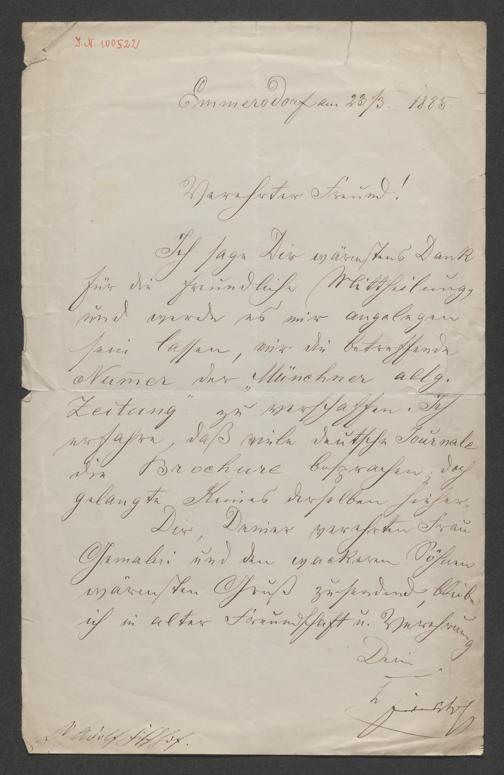 I.N. 100522
Emmersdorf am 23/3. 1885.
Verehrter Freund!
Ich sage Dir wärmstens Dank
für die freundliche Mittheilung,
und werde es mir angelegen
sein lassen, mir die betreffende
Numer der „Münchner allg.
Zeitung" zu verschaffen. Ich
erfahre, daß viele deutsche Journale
die Brochure besprachen, doch
gelangte keines derselben hieher.
Dir, Deiner verehrten Frau
Gemalin und den wackeren Söhnen
wärmsten Gruß zusendend, bleibe
ich in alter Freundschaft u. Verehrung
Dein
Dr Adolf Fischhof.